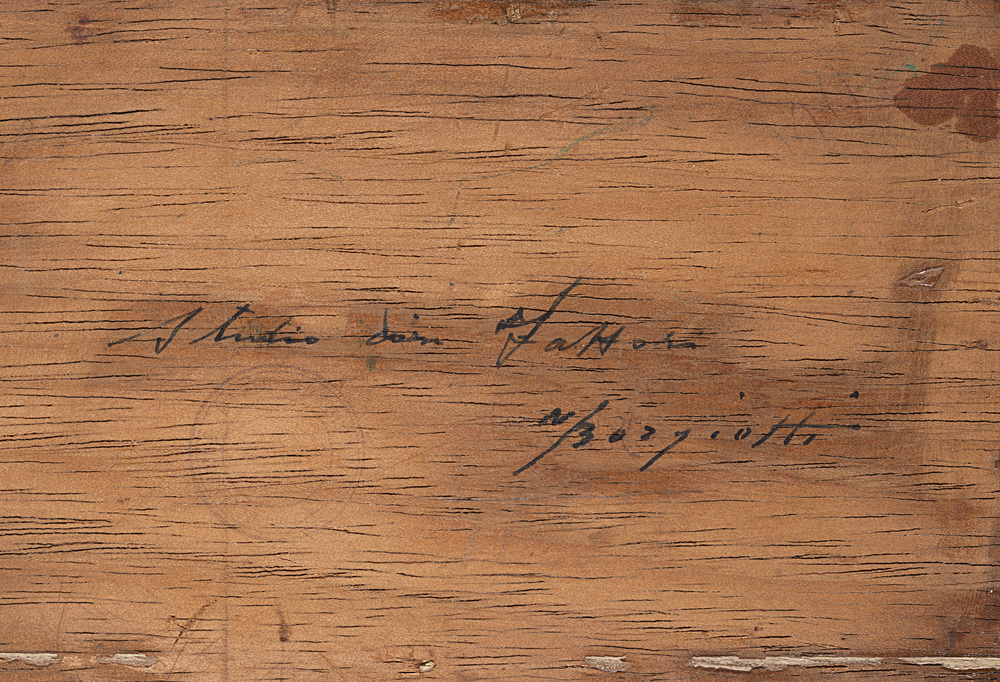 Studio di G. Fattori
M Borgiotti